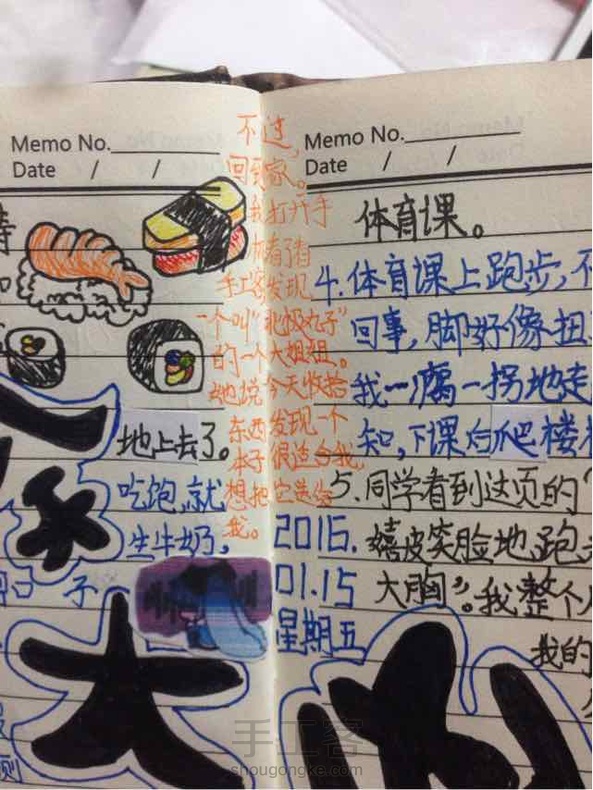 Memo No.
Date / /
地上去了。
吃饱,就
生牛奶,
大
不过,
回到家。
我打开手
手工客发现,
一个叫"北极丸子"
的一个大姐姐。
她说今天收拾
东西发现一个
本子很适合我,
想把它送给
我。
Memo No.
Date / /
体育课。
4.体育课上跑步,不
回事,脚好像扭
我一瘸一拐地走
知,下课后爬楼梯
5.同学看到这页的
嬉皮笑脸地跑
大胸"。我整个
我的
2016.
01.15
星期五
手工客
shougongke.com